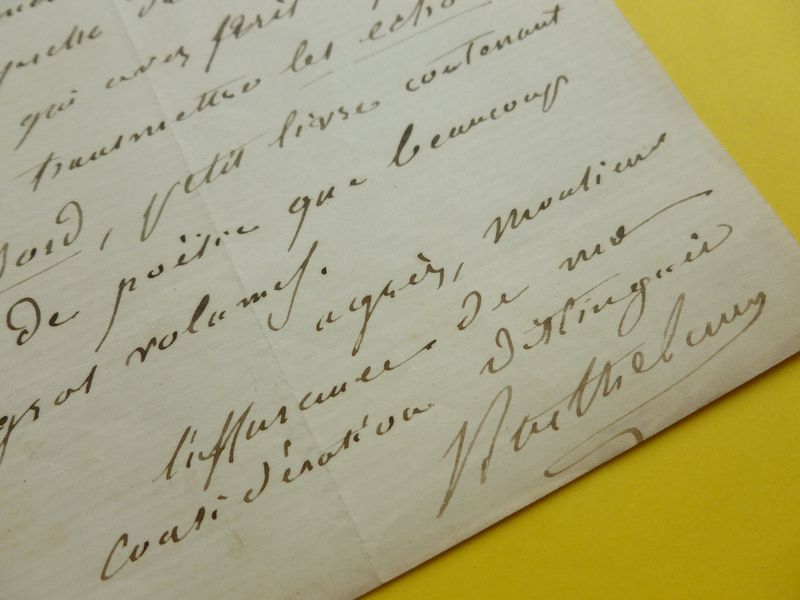 qui avez prit
transmettre les echo
bord, petit livre contenant
de poësie que beaucoup
gros volumes.
agréez, Monsieur
l'assurance de ma
considération distinguée
Barthelemy